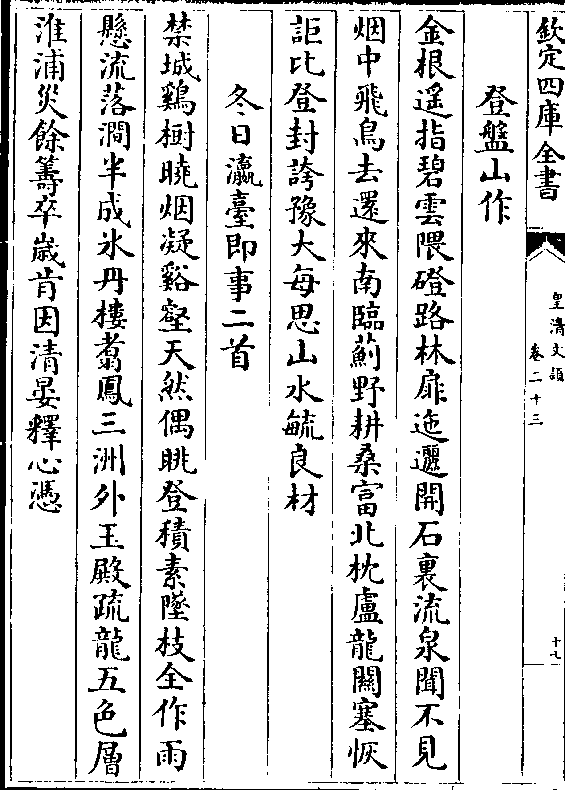 欽定四庫全書
皇清文頴
卷二十三
十七
登盤山作
金根遥指碧雲隈磴路林扉迤邐開石裏流泉聞不見
烟中飛鳥去還來南臨薊野耕桑富北枕盧龍關塞恢
詎比登封誇豫大每思山水毓良材
冬日瀛臺即事二首
禁城鷄樹曉烟凝谿壑天然偶眺登積素墜枝全作雨
懸流落澗半成氷丹樓翥鳳三洲外玉殿疏龍五色層
淮浦災餘籌卒歲肯因清晏釋心憑